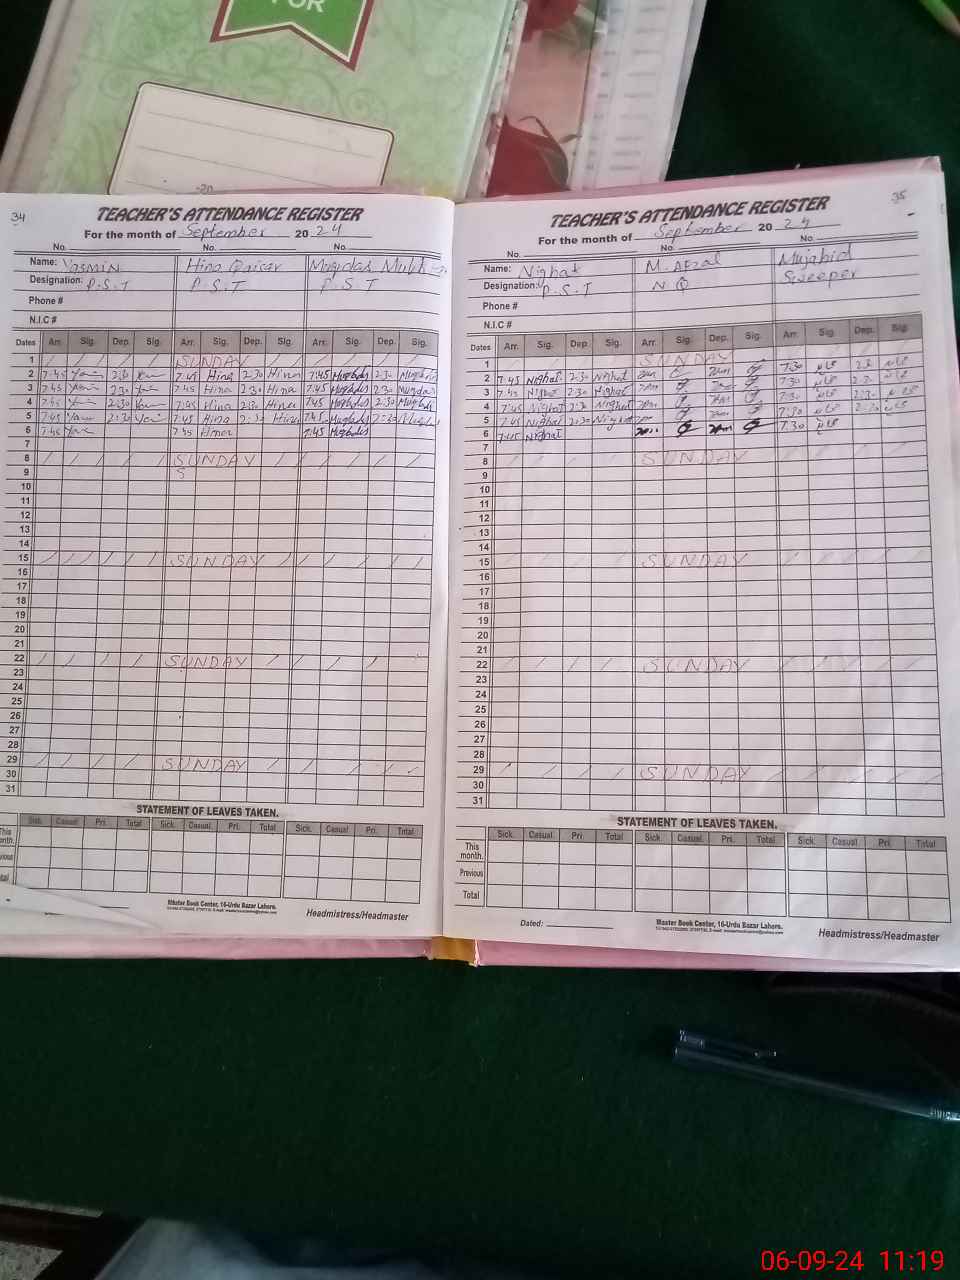 FOR
-20
34
TEACHER'S ATTENDANCE REGISTER
For the month of September 20 24
No. No. No.
Name: Yasmin Hina Qaisar
Designation: P.S.T P.S.T P.S.T
Phone #
N.I.C #
Dates Arr. Sig. Dep. Sig. Arr. Sig. Dep. Sig. Arr. Sig. Dep. Sig.
1 SUNDAY
2 7:45 2:30 7:45 Hina 2:30 Hina 7:45 2:30
3 7:45 2:30 7:45 Hina 2:30 Hina 7:45 2:30
4 7:45 2:30 7:45 Hina 2:30 Hina 7:45 2:30
5 7:45 2:30 7:45 Hina 2:30 Hina 7:45 2:30
6 7:45 7:45 Hina 7:45
7
8 SUNDAY
9 S
10
11
12
13
14
15 SUNDAY
16
17
18
19
20
21
22 SUNDAY
23
24
25
26
27
28
29 SUNDAY
30
31
STATEMENT OF LEAVES TAKEN.
Sick. Casual. Pri. Total Sick. Casual. Pri. Total Sick. Casual. Pri. Total
This
month.
Master Book Center, 16-Urdu Bazar Lahore.
Headmistress/Headmaster
35
TEACHER'S ATTENDANCE REGISTER
For the month of September 20 24
No. No. No.
Name: Nighat M. Afzal Mujahid
Designation: P.S.T N Q Sweeper
Phone #
N.I.C #
Dates Arr. Sig. Dep. Sig. Arr. Sig. Dep. Sig. Arr. Sig. Dep. Sig.
1 SUNDAY
2 7:45 Nighat 2:30 Nighat 7:30 2:30
3 7:45 Nighat 2:30 Nighat 7:30 2:30
4 7:45 Nighat 2:30 Nighat 7:30 2:30
5 7:45 Nighat 2:30 Nighat 7:30 2:30
6 7:45 Nighat 7:30
7
8 SUNDAY
9
10
11
12
13
14
15 SUNDAY
16
17
18
19
20
21
22 SUNDAY
23
24
25
26
27
28
29 SUNDAY
30
31
STATEMENT OF LEAVES TAKEN.
Sick. Casual. Pri. Total Sick. Casual. Pri. Total Sick. Casual. Pri. Total
This
month.
Previous
Total
Dated:
Master Book Center, 16-Urdu Bazar Lahore.
Headmistress/Headmaster
06-09-24 11:19